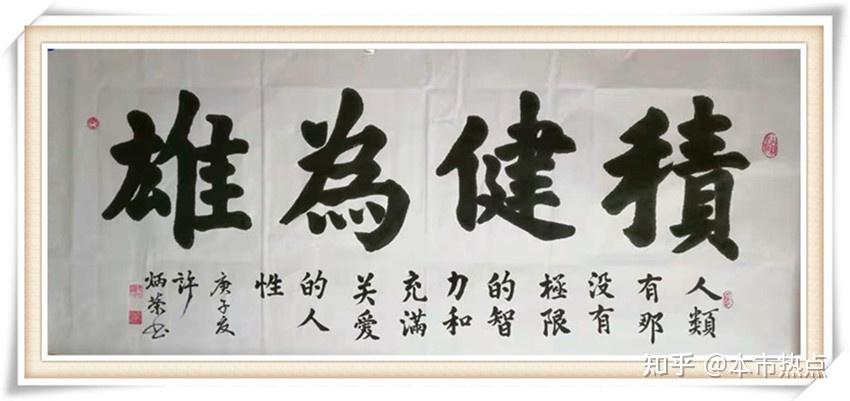 積健為雄
人類
有那
没有
極限
的智
力和
充滿
关愛
的人
性
庚子夏
許
炳榮书
知乎 @本市热点